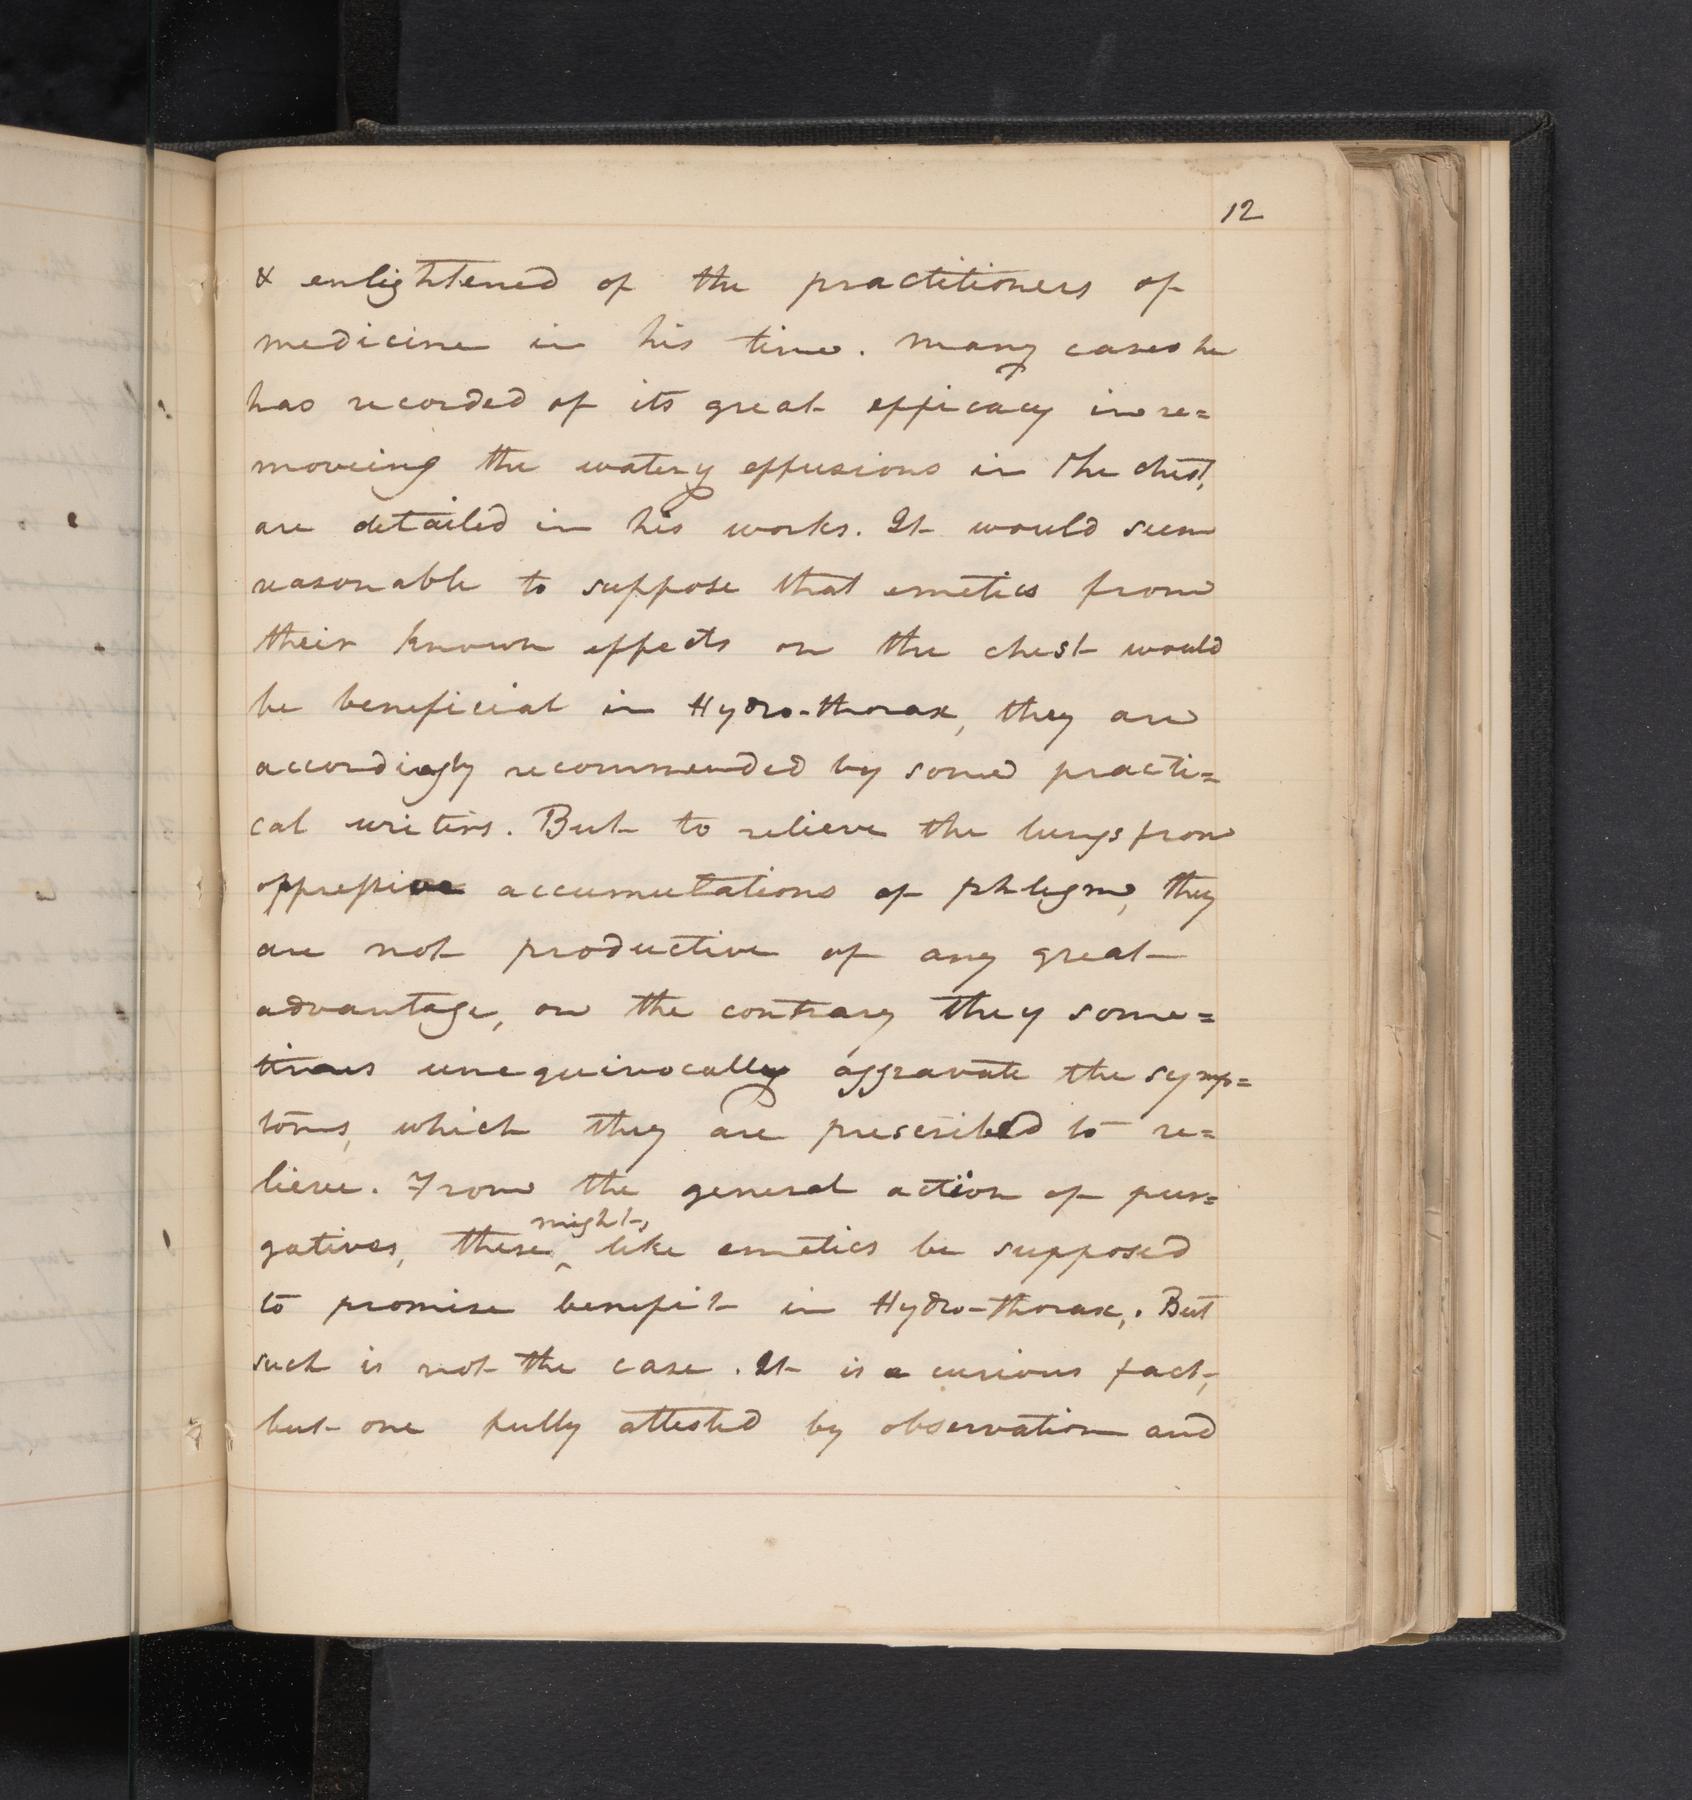 12
& enlightened of the practitioners of
medicine in his time. Many cases he
has recorded of its great efficacy in re=
moveing the watery effusions in the chest,
are detailed in his works. It would seem
reasonable to suppose that emetics from
their known effects on the chest would
be beneficial in Hydro-thorax, they are
accordingly recommended by some practi=
cal writers. But to relieve the lungs from
oppressive accumulations of phlegm, they
are not productive of any great
advantage, on the contrary they some=
times unequivocally aggravate the symp=
toms, which they are prescribed to re=
lieve. From the general action of pur=
gatives, these might, like emetics be supposed
to promise benefit in Hydro-thorax,. But
such is not the case. It is a curious fact,
but one fully attested by observation and